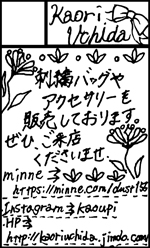 Kaori
Uchida
刺繍バッグや
アクセサリーを
販売しております。
ぜひ、ご来店
くださいませ.
minne⇒
https://minne.com/dust156
Instagram⇒kaoupi
HP⇒
http://kaoriuchida.jimdo.com/